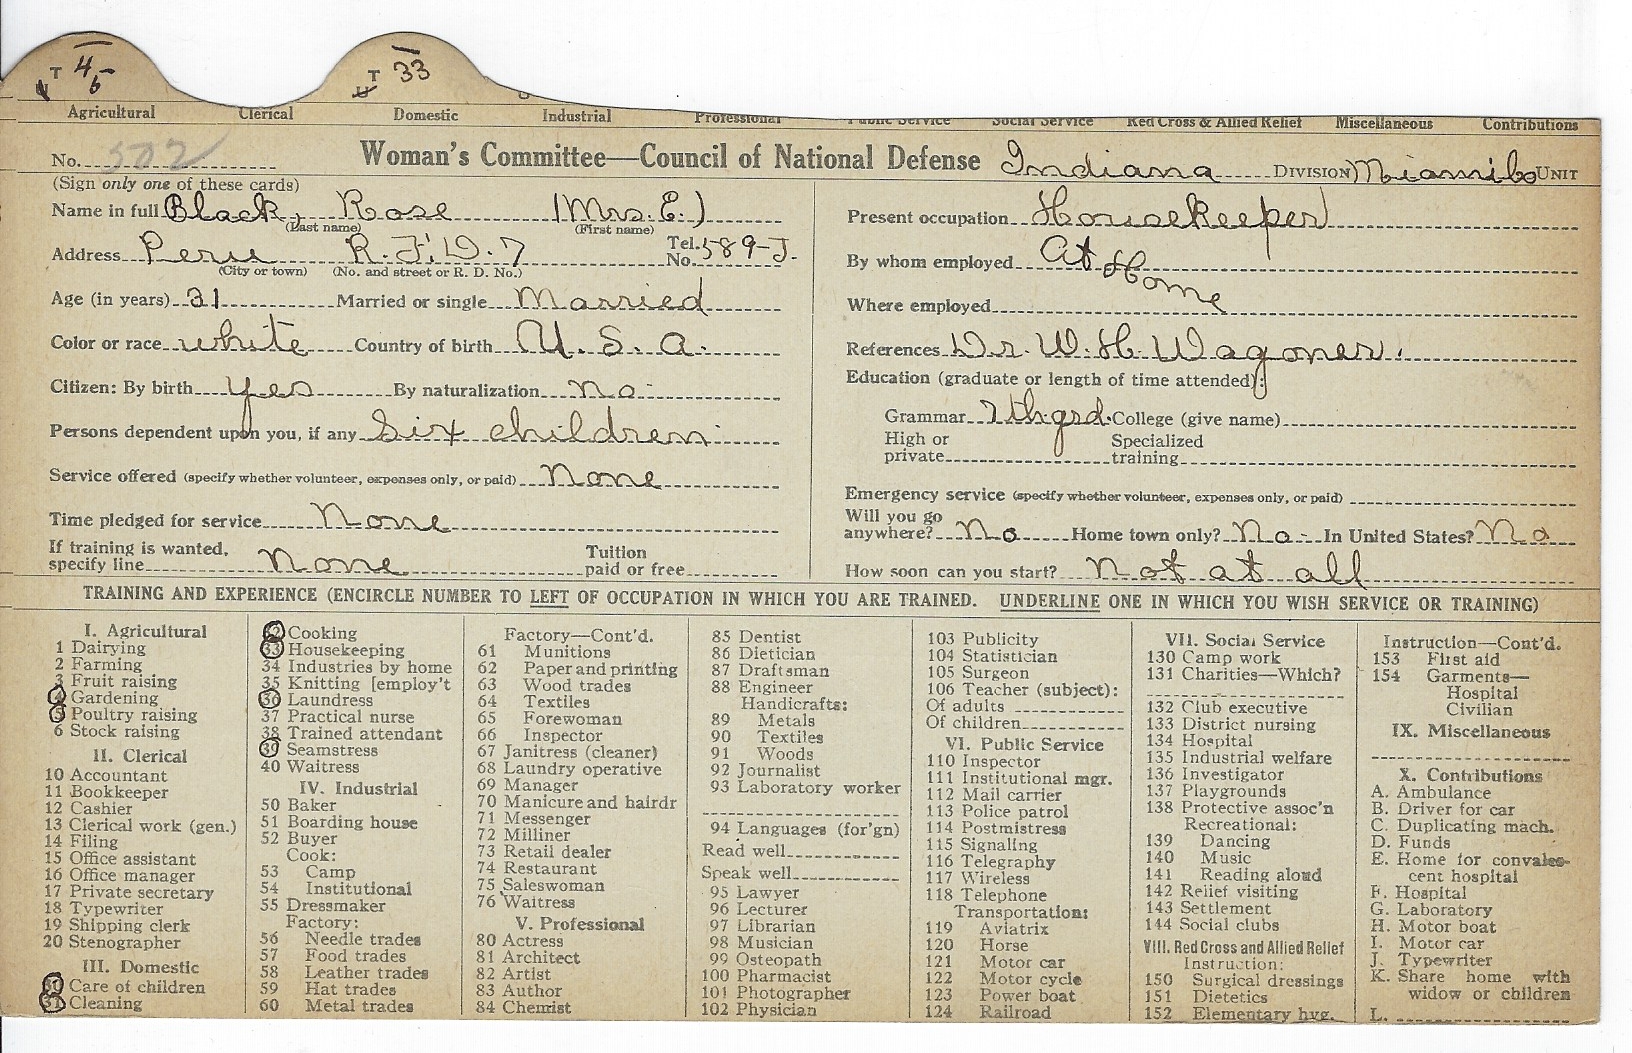 T 4 5
T 33
Agricultural Clerical Domestic Industrial Professional Public Service Social Service Red Cross & Allied Relief Miscellaneous Contributions
No. 502 Woman's Committee—Council of National Defense Indiana DIVISION Miami Co UNIT
(Sign only one of these cards)
Name in full Black, Rose (Mrs. E.)
(Last name) (First name)
Address Peru R.F.D. 7 Tel. No. 589-J.
(City or town) (No. and street or R. D. No.)
Age (in years) 31 Married or single Married
Color or race white Country of birth U. S. A.
Citizen: By birth Yes By naturalization no
Persons dependent upon you, if any Six children
Service offered (specify whether volunteer, expenses only, or paid) None
Time pledged for service None
If training is wanted, specify line None Tuition paid or free
Present occupation Housekeeper
By whom employed At Home
Where employed
References Dr. W. H. Wagoner.
Education (graduate or length of time attended):
Grammar 7th grd. College (give name)
High or private Specialized training
Emergency service (specify whether volunteer, expenses only, or paid)
Will you go anywhere? No Home town only? No In United States? No
How soon can you start? not at all
TRAINING AND EXPERIENCE (ENCIRCLE NUMBER TO LEFT OF OCCUPATION IN WHICH YOU ARE TRAINED. UNDERLINE ONE IN WHICH YOU WISH SERVICE OR TRAINING)
I. Agricultural
1 Dairying
2 Farming
3 Fruit raising
4 Gardening
5 Poultry raising
6 Stock raising
II. Clerical
10 Accountant
11 Bookkeeper
12 Cashier
13 Clerical work (gen.)
14 Filing
15 Office assistant
16 Office manager
17 Private secretary
18 Typewriter
19 Shipping clerk
20 Stenographer
III. Domestic
30 Care of children
31 Cleaning
32 Cooking
33 Housekeeping
34 Industries by home
35 Knitting [employ't
36 Laundress
37 Practical nurse
38 Trained attendant
39 Seamstress
40 Waitress
IV. Industrial
50 Baker
51 Boarding house
52 Buyer
Cook:
53 Camp
54 Institutional
55 Dressmaker
Factory:
56 Needle trades
57 Food trades
58 Leather trades
59 Hat trades
60 Metal trades
Factory—Cont'd.
61 Munitions
62 Paper and printing
63 Wood trades
64 Textiles
65 Forewoman
66 Inspector
67 Janitress (cleaner)
68 Laundry operative
69 Manager
70 Manicure and hairdr
71 Messenger
72 Milliner
73 Retail dealer
74 Restaurant
75 Saleswoman
76 Waitress
V. Professional
80 Actress
81 Architect
82 Artist
83 Author
84 Chemist
85 Dentist
86 Dietician
87 Draftsman
88 Engineer
Handicrafts:
89 Metals
90 Textiles
91 Woods
92 Journalist
93 Laboratory worker
94 Languages (for'gn)
Read well
Speak well
95 Lawyer
96 Lecturer
97 Librarian
98 Musician
99 Osteopath
100 Pharmacist
101 Photographer
102 Physician
103 Publicity
104 Statistician
105 Surgeon
106 Teacher (subject):
Of adults
Of children
VI. Public Service
110 Inspector
111 Institutional mgr.
112 Mail carrier
113 Police patrol
114 Postmistress
115 Signaling
116 Telegraphy
117 Wireless
118 Telephone
Transportation:
119 Aviatrix
120 Horse
121 Motor car
122 Motor cycle
123 Power boat
124 Railroad
VII. Social Service
130 Camp work
131 Charities—Which?
132 Club executive
133 District nursing
134 Hospital
135 Industrial welfare
136 Investigator
137 Playgrounds
138 Protective assoc'n
Recreational:
139 Dancing
140 Music
141 Reading aloud
142 Relief visiting
143 Settlement
144 Social clubs
VIII. Red Cross and Allied Relief
Instruction:
150 Surgical dressings
151 Dietetics
152 Elementary hyg.
Instruction—Cont'd.
153 First aid
154 Garments—
Hospital
Civilian
IX. Miscellaneous
X. Contributions
A. Ambulance
B. Driver for car
C. Duplicating mach.
D. Funds
E. Home for convales-
cent hospital
F. Hospital
G. Laboratory
H. Motor boat
I. Motor car
J. Typewriter
K. Share home with
widow or children
L.